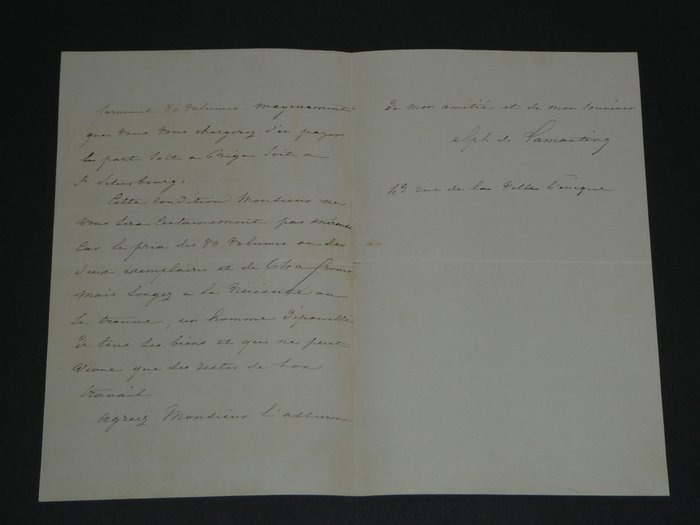 formant 80 volumes. moyennant
que vous vous chargerez d'en payer
le port soit a Riga soit a
St Petersbourg.
Cette condition Monsieur ne
vous sera certainement pas onéreuse
car le prix des 80 volumes ou des
deux exemplaires est de 640 francs
mais songez a la nécessité ou
se trouve, un homme dépouillé
de tous ses biens et qui ne peut
vivre que des restes de son
travail
agreez Monsieur l'assurance
de mon amitié et de mon souvenir
alph de Lamartine
43 rue de la Ville l'évêque